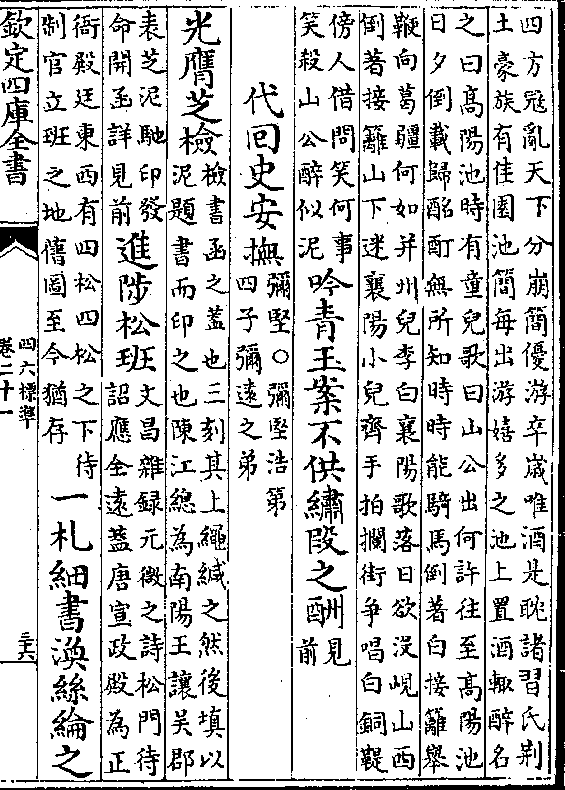 四方冦亂天下分崩簡優游卒嵗唯酒是眈諸習氏荆
土豪族有佳園池簡每出游嬉多之池上置酒輙醉名
之曰髙陽池時有童兒歌曰山公出何許往至髙陽池
日夕倒載歸酩酊無所知時時能騎馬倒著白接籬舉
鞭向葛疆何如并州兒李白襄陽歌落日欲没峴山西
倒著接籬山下迷襄陽小兒齊手拍攔街争唱白銅鞮
傍人借問笑何事
笑殺山公醉似泥
吟青玉案不供繡段之酬
見前
代回史安撫
彌堅○彌堅浩第
四子彌逺之弟
光膺芝檢
檢書函之葢也三刻其上繩緘之然後填以
泥題書而印之也陳江總為南陽王讓吳郡
表芝泥馳印發
命開函詳見前
進陟松班
文昌雜録元微之詩松門待
詔應全逺葢唐宣政殿為正
衙殿廷東西有四松四松之下待
制官立班之地舊圖至今猶存
一札細書渙絲綸之
欽定四庫全書
四六標準
卷二十一
三六